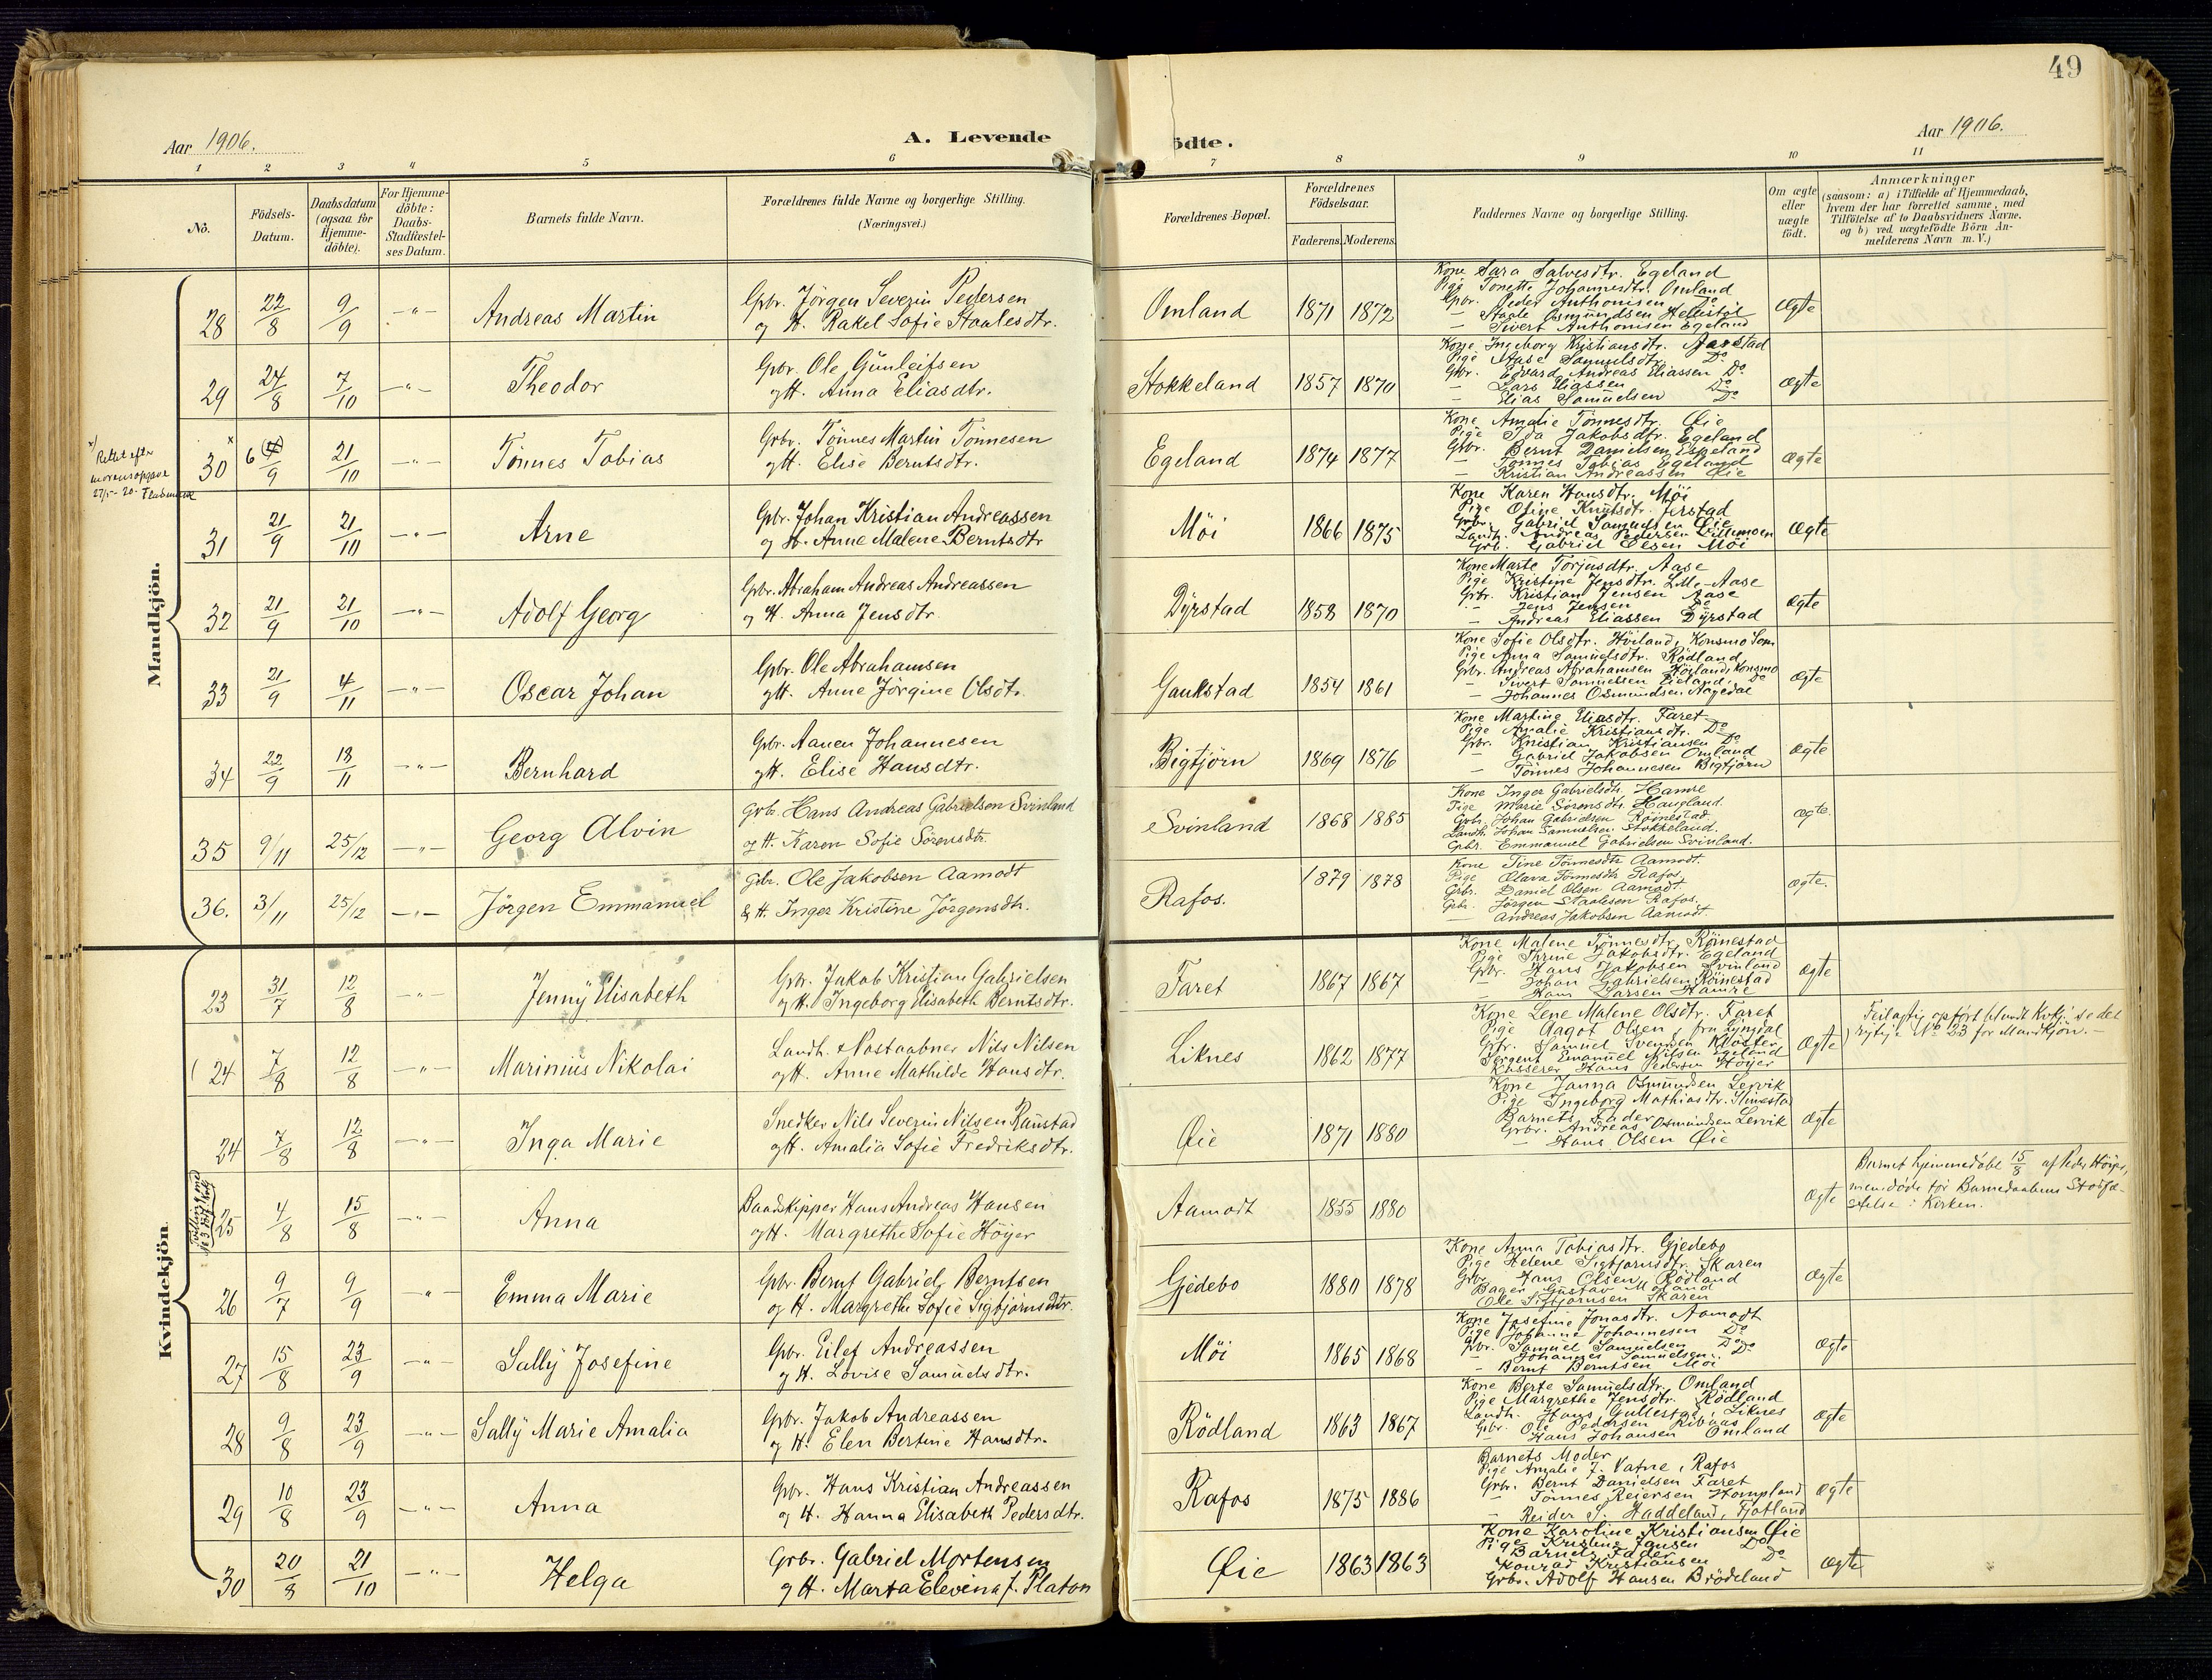 49
Aar 1906.
A. Levende
ödte.
Aar 1906.
1 2 3 4 5 6 7 8 9 10 11
No.
Födsels-Datum.
Daabsdatum (ogsaa for Hjemme-döbte).
For Hjemme-döbte: Daabs-Stadfæstel-ses Datum.
Barnets fulde Navn.
Forældrenes fulde Navne og borgerlige Stilling. (Næringsvei.)
Forældrenes Bopæl.
Forældrenes Födselsaar.
Faderens. Moderens.
Faddernes Navne og borgerlige Stilling.
Om ægte eller uægte födt.
Anmærkninger
(saasom: a) i Tilfælde af Hjemmedaab,
hvem der har forrettet samme, med
Tilföielse af to Daabsvidners Navne.
og b) ved uægtefödte Börn An-
melderens Navn m.V.)
Mandkjön.
28 22/8 9/9 -"- Andreas Martin
Gbr. Jörgen Severin Pedersen
og H. Rakel Sofie Staalesdtr.
Omland 1871 1872
Kone Sara Salvesdtr. Egeland
Pige Tonette Johannesdtr. Omland
Gbr. Peder Anthonisen Do
- Staale Osmundsen Hellestöl
- Sivert Anthonisen Egeland
Ægte
29 24/8 7/10 -"- Theodor
Gbr. Ole Gunleifsen
og H. Anna Eliasdtr.
Stokkeland 1857 1870
Kone Ingeborg Kristiansdtr. Aarstad
Pige Aase Samuelsdtr. Do
Gbr. Edvard Andreas Eliassen Do
- Lars Eliassen Do
- Elias Samuelsen Do
Ægte
x) Rettet efter
morens opgave
27/5-20.
30 x 6 (4)/9 21/10 -"- Tönnes Tobias
Gbr. Tönnes Martin Tönnesen
og H. Elise Berntsdtr.
Egeland 1874 1877
Kone Amalie Tönnesdtr. Øie
Pige Ida Jakobsdtr. Egeland
Grbr. Bernt Danielsen Espeland
- Tönnes Tobias Egeland
- Kristian Andreassen Øie
Ægte
31 21/9 21/10 -"- Arne
Gbr. Johan Kristian Andreassen
og H. Anne Malene Berntsdtr
Möi 1866 1875
Kone Karen Hansdtr. Möi
Pige Ofine Knutsdtr. Jerstad
Grbr. Gabriel Samuelsen Øie
Landh. Andreas Pedersen Lillemoen
Grb. Gabriel Olsen Möi
Ægte
32 21/9 21/10 -"- Adolf Georg
Gbr. Abraham Andreas Andreassen
og H. Anna Jensdtr
Dyrstad 1858 1870
Kone Marte Torjusdtr. Aase
Pige Kristine Jensdtr. L.lle-Aase
Grbr. Kristian Jensen Aase
- Jens Jensen Do
- Andreas Eliassen Dyrstad
Ægte
33 21/9 4/11 -"- Oscar Johan
Gbr. Ole Abrahamsen
og H. Anne Jörgine Olsdtr.
Gaukstad 1854 1861
Kone Sofie Olsdtr. Höiland, Konsmo Sogn
Pige Anna Samuelsdtr. Rödland
Grbr. Andreas Abrahamsen Höiland, Konsmo
- Sivert Samuelsen Eieland, Do
- Johannes Osmundsen Aagedal
Ægte
34 22/9 18/11 -"- Bernhard
Gbr. Aanen Johannesen
og H. Elise Hansdtr.
Bigtjörn 1869 1876
Kone Martine Eliasdtr. Faret
Pige Amalie Kristiansdtr. Do
Grbr. Kristian Kristiansen Do
- Gabriel Jakobsen Omland
- Tönnes Johannesen Bigtjörn
Ægte
35 9/11 25/12 -"- Georg Alvin
Grbr. Hans Andreas Gabrielsen Svinland
og H. Karen Sofie Sörensdtr.
Svinland 1868 1885
Kone Inger Gabrielsdtr. Hamre
Pige Marie Sörensdtr. Haugland.
Grbr. Johan Gabrielsen Röinestad.
Landh. Johan Samuelsen Stokkeland.
Gpbr. Emmanuel Gabrielsen Svinland.
Ægte.
36. 3/11 25/12 -"- Jörgen Emmanuel
Gbr. Ole Jakobsen Aamodt
& H. Inger Kristine Jörgensdtr.
Rafos. 1879 1878
Kone Tine Tönnesdtr Aamodt.
Pige Olava Tönnesdtr Rafos.
Grbr. Daniel Olsen Aamodt.
Grbr. Jörgen Staalesen Rafos.
- Andreas Jakobsen Aamodt.
Ægte.
Kvindekjön
23 31/7 12/8 -"- Jenny Elisabeth
Gbr. Jakob Kristian Gabrielsen
og H. Ingeborg Elisabeth Berntsdtr.
Faret 1867 1867
Kone Malene Tönnesdtr. Röinestad
Pige Thrine Jakobsdtr. Egeland
Gbr. Hans Jakobsen Svinland
- Johan Gabrielsen Röinestad
- Hans Larsen Hamre
Ægte
( 24 7/8 12/8 -"- Marinius Nikolai
Landh. & Postaabner Nils Nilsen
og H. Anne Mathilde Hansdtr.
Liknes 1862 1877
Kone Lene Malene Olsdtr. Faret
Pige Aagot Olsen, fra Lyngdal
Gbr. Samuel Svendsen Kloster
Sergent Emanuel Nilsen Egeland
Kasserer Hans Pedersen Höyer
Ægte )
Feilagtig opfört blandt Kvkj. se det
rigtige No 23 for Mandkjön. -
24 7/8 12/8 -"- Inga Marie
Snedker Nils Severin Nilsen Raustad
og H. Amalia Sofie Fredriksdtr.
Øie 1871 1880
Kone Janna Osmundsen Lervik
Pige Ingeborg Mathiasdtr. Stinestad
Barnets Fader
Grbr. Andreas Osmundsen Lervik
- Hans Olsen Øie
Ægte
25 4/8 15/8 -"- Anna
Baadskipper Hans Andreas Hansen
og H. Margrethe Sofie Höyer
Aamodt 1855 1880
Ægte
Barnet hjemmedöbt 15/8 af Peder Höyer,
men döde för Barnedaabens Stadfæ-
stelse i Kirken.
26 9/7 9/9 -"- Emma Marie
Gbr. Bernt Gabriel Berntsen
og H. Margrethe Sofie Sigbjörnsdtr.
Gjedebo 1880 1878
Kone Anna Tobiasdtr. Gjedebo
Pige Helene Sigbjörnsdtr. Skaren
Grbr. Hans Olsen Rödland
Bager Gustav Möland
Ole Sigbjörnsen Skaren
Ægte
27 15/8 23/9 -"- Sally Josefine
Gbr. Eilef Andreassen
og H. Lovise Samuelsdtr.
Möi 1865 1868
Kone Josefine Jonasdtr. Aamodt
Pige Johanne Johannesen Do
Gbr. Samuel Samuelsen Do
- Johannes Samuelsen Do
- Bernt Berntsen Möi
Ægte
28 9/8 23/9 -"- Sally Marie Amalia
Gbr. Jakob Andreassen
og H. Elen Bertine Hansdtr.
Rödland 1863 1867
Kone Berte Samuelsdtr. Omland
Pige Margrethe Jensdtr. Rödland
Landh. Hans Gullestad, Liknes
Gbr. Ole Pedersen Ribnaas
- Hans Johansen Omland
Ægte
29 10/8 23/9 -"- Anna
Gbr. Hans Kristian Andreassen
og H. Hanna Elisabeth Pedersdtr.
Rafos 1875 1886
Barnets Moder
Pige Amalie J. Vatne, Rafos
Grbr. Bernt Danielsen Faret
- Tönnes Reiersen Hompland
- Reider S. Haddeland, Fjotland
Ægte
30 20/8 21/10 -"- Helga
Grbr. Gabriel Mortensen
og H. Marta Elevina f. Platon
Øie 1863 1863
Kone Karoline Kristiansen Øie
Pige Kristine Jansen Do
Barnets Fader
Konrad Kristiansen Do
Grbr. Adolf Hansen Brödeland
Ægte